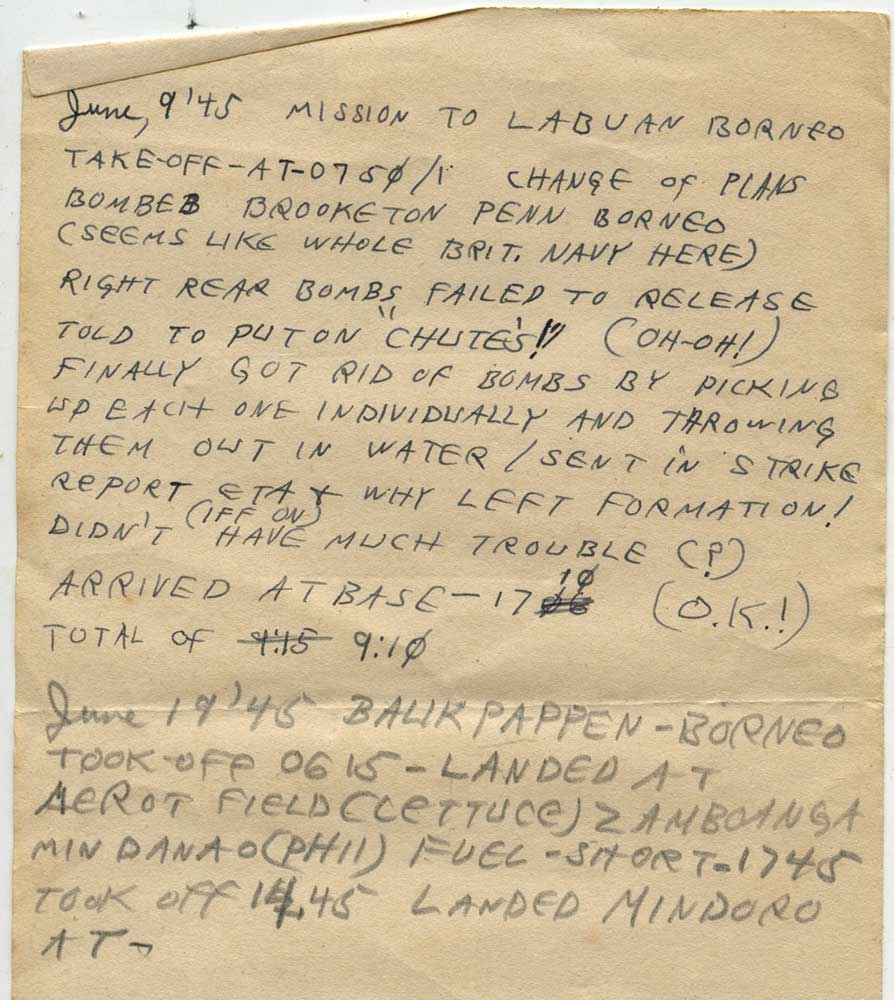 June, 9 '45 MISSION TO LABUAN BORNEO
TAKE-OFF-AT-0750/1 CHANGE of PLANS
BOMBED BROOKETON PENN BORNEO
(SEEMS LIKE WHOLE BRIT. NAVY HERE)
RIGHT REAR BOMBS FAILED TO RELEASE
TOLD TO PUT ON "CHUTE'S!!" (OH-OH!)
FINALLY GOT RID OF BOMBS BY PICKING
UP EACH ONE INDIVIDUALLY AND THROWING
THEM OUT IN WATER / SENT in STRIKE
REPORT ETA + WHY LEFT FORMATION!
(IFF ON)
DIDN'T HAVE MUCH TROUBLE (?)
ARRIVED AT BASE - 17 06 10 (O.K.!)
TOTAL OF 9:15 9:10
June 19 '45 BALIK PAPPEN - BORNEO
TOOK-OFF 0615 - LANDED AT
MEROT FIELD (LETTUCE) ZAMBOANGA
MINDANAO (PHIl) FUEL-SHORT-1745
TOOK Off 14.45 LANDED MINDORO
AT-